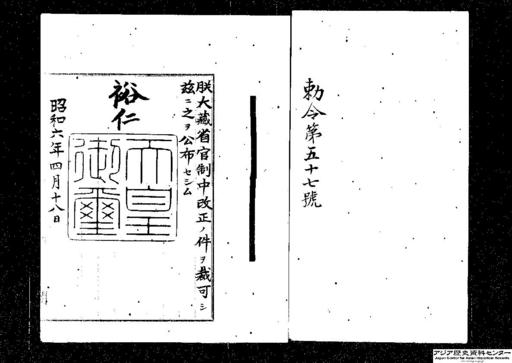 勅令第五十七號
朕大藏省官制中改正ノ件ヲ裁可シ
茲ニ之ヲ公布セシム
裕仁
天皇
御璽
昭和六年四月十八日
アジア歴史資料センター
Japan Center for Asian Historical Records